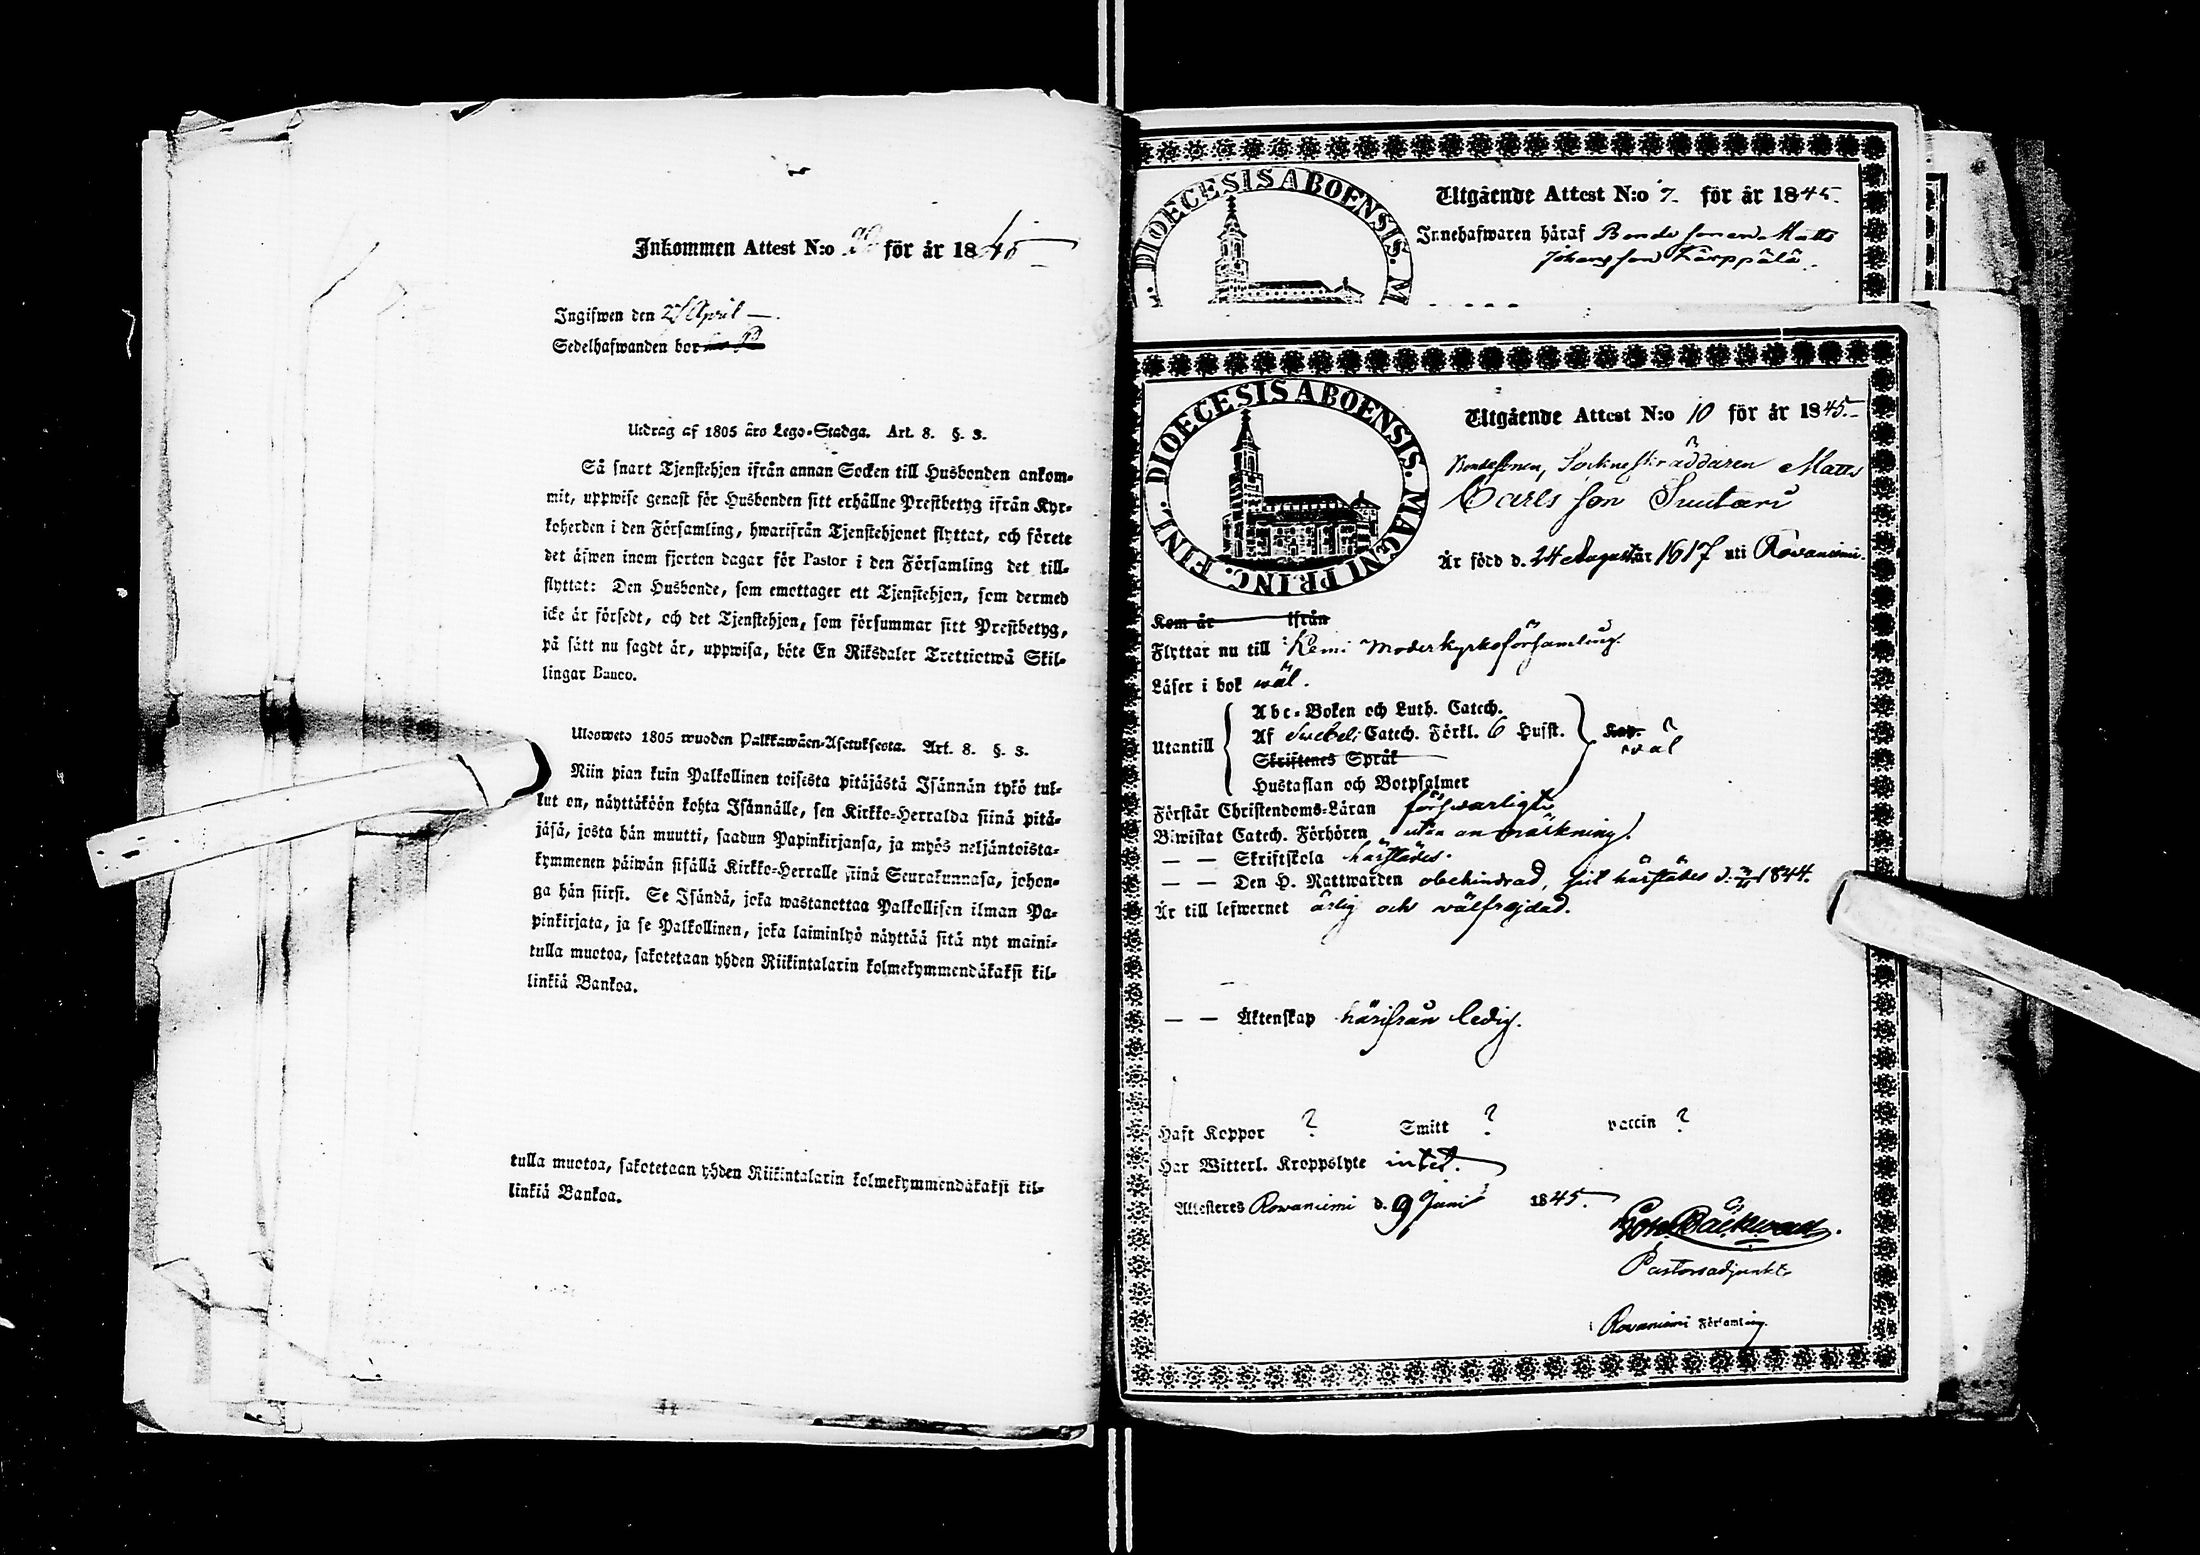 Inkommen Attest N:o för år 1845
Ingifwen den 27 April —.
Sedelhafwanden bor
Utdrag af 1805 års Lego-Stadga. Art. 8. §. 3.
Så snart Tjenstehjon ifrån annan Socken till Husbonden ankom-
mit, uppwise genast för Husbonden sitt erhållne Prestbetyg ifrån Kyr-
koherden i den Församling, hwarifrån Tjenstehjonet flyttat, och förete
det äfwen inom fjorton dagar för Pastor i den Församling det till-
flyttat: Den Husbonde, som emottager ett Tjenstehjon, som dermed
icke är försedt, och det Tjenstehjon, som försummar sitt Prestbetyg,
på sätt nu sagdt är, uppwisa, böte En Riksdaler Trettiotwå Skil-
lingar Banco.
Ulosweto 1805 wuoden Palkkawäen-Asetuksesta. Art. 8. §. 3.
Niin pian kuin Palkollinen toisesta pitäjästä Isännän tykö tul-
lut on, näyttäköön kohta Isännälle, sen Kirkko-Herralda siinä pitä-
jäsä, josta hän muutti, saadun Papinkirjansa, ja myös neljäntoista-
kymmenen päiwän sisällä Kirkko-Herralle siinä Seurakunnasa, johon-
ga hän siirsi. Se Isändä, joka wastanottaa Palkollisen ilman Pa-
pinkirjata, ja se Palkollinen, joka laiminlyö näyttää sitä nyt maini-
tulla muotoa, sakotetaan yhden Riikintalarin kolmekymmendäkaksi kil-
linkiä Bankoa.
tulla muotoa, sakotetaan yhden Riikintalarin kolmekymmendäkaksi kil-
linkiä Bankoa.
DIOECESIS ABOENSIS. M
Utgående Attest N:o 7. för år 1845.
Innehafwaren häraf Bonde sonen Matts
Johansson Karppälä.
DIOECESIS ABOENSIS. MAGNI PRINC. FINL.
Utgående Attest N:o 10 för år 1845.
Bondesonen, Sockneskräddaren Matts
Carls son Suutari
Är född d. 24 Augusti år 1817 uti Rovaniemi.
Kom år ifrån
Flyttar nu till Kemi Moderkyrkoförsamling.
Läser i bok wäl.
Utantill
Abc-Boken och Luth. Catech.
Af Swebeli Catech. Förkl. 6 Hufst.
Skriftenes Språk
Hustaflan och Botpsalmer
wäl
Förstår Christendoms-Läran försvarligt
Biwistat Catech. Förhören utan anmärkning.
— — Skriftskola härstädes.
— — Den H. Nattwarden obehindrad, sist härstädes d. 1844.
Är till lefwernet ärlig och välfrejdad.
— — Äktenskap härifrån ledig.
Haft Koppor ? Smitt ? vaccin ?
Har Witterl. Kroppslyte intet.
Attesteres Rovaniemi d. 9 Juni 1845.
Bäckman.
Pastorsadjunkt
Rovaniemi Församling.